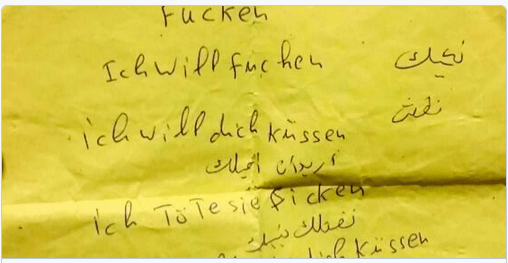 fucken
Ich will fuchen نكيك
ich will dich küssen
اريدان اقبلك
ich TöTe sie ficken
نقتلك
dich küssen